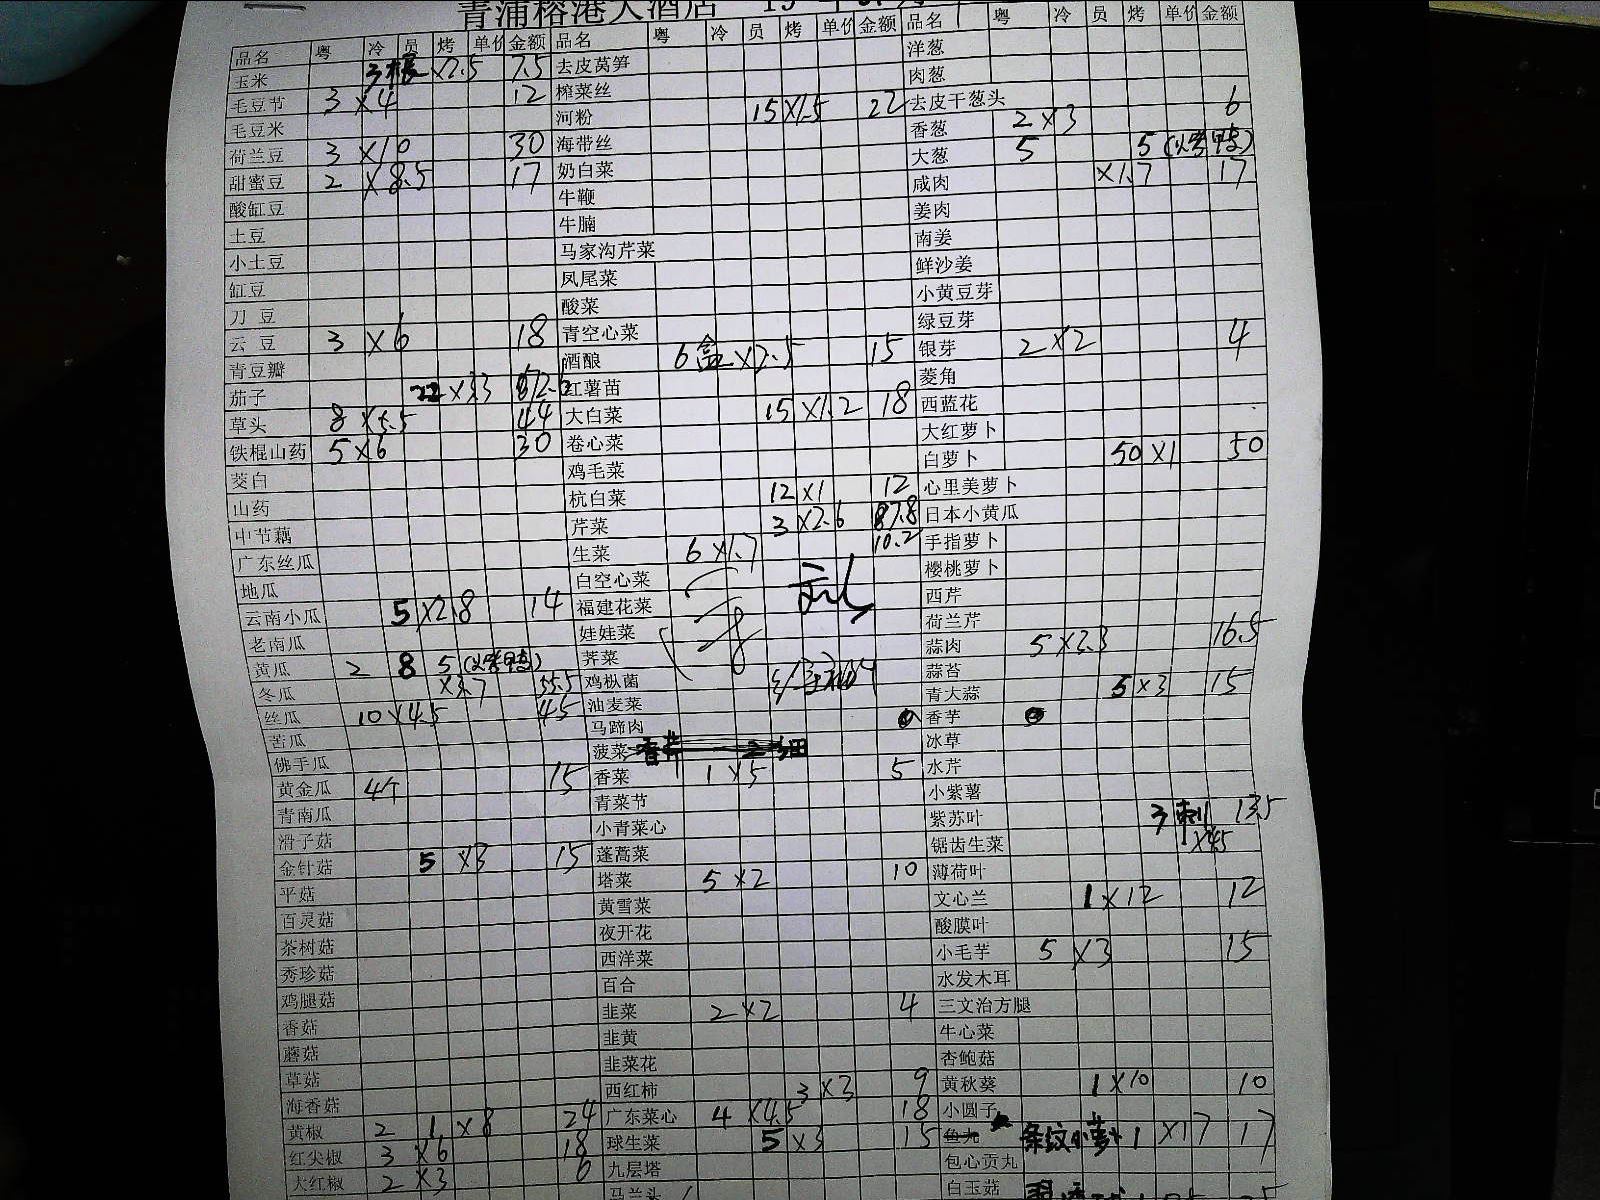 青浦榕港大酒店
品名 粤 冷 员 烤 单价 金额 品名 粤 冷 员 烤 单价 金额 品名 粤 冷 员 烤 单价 金额
玉米 3根 ×2.5 7.5 去皮莴笋 洋葱
毛豆节 3 ×4 12 榨菜丝 肉葱
毛豆米 河粉 15 ×1.5 22 去皮干葱头
荷兰豆 3 ×10 30 海带丝 香葱 2 ×3 6
甜蜜豆 2 ×8.5 17 奶白菜 大葱 5 5
酸缸豆 牛鞭 咸肉 ×1.7 17
土豆 牛腩 姜肉
小土豆 马家沟芹菜 南姜
缸豆 凤尾菜 鲜沙姜
刀豆 酸菜 小黄豆芽
云豆 3 ×6 18 青空心菜 绿豆芽
青豆瓣 酒酿 6盒 ×2.5 15 银芽 2 ×2 4
茄子 22 ×3.3 红薯苗 菱角
草头 8 ×5.5 44 大白菜 15 ×1.2 18 西蓝花
铁棍山药 5 ×6 30 卷心菜 大红萝卜
茭白 鸡毛菜 白萝卜 50 ×1 50
山药 杭白菜 12 ×1 12 心里美萝卜
中节藕 芹菜 3 ×2.6 7.8 日本小黄瓜
广东丝瓜 生菜 6 ×1.7 10.2 手指萝卜
地瓜 白空心菜 樱桃萝卜
云南小瓜 5 ×2.8 14 福建花菜 西芹
老南瓜 娃娃菜 荷兰芹
黄瓜 2 8 5 ×3.7 55.5 荠菜 蒜肉 5 ×3.3 16.5
冬瓜 鸡枞菌 蒜苔
丝瓜 10 ×4.5 45 油麦菜 青大蒜 5 ×3 15
苦瓜 马蹄肉 香芋
佛手瓜 菠菜 冰草
黄金瓜 4个 15 香菜 1 ×5 5 水芹
青南瓜 青菜节 小紫薯
滑子菇 小青菜心 紫苏叶 3 ×4.5 13.5
金针菇 5 ×3 15 蓬蒿菜 锯齿生菜
平菇 塔菜 5 ×2 10 薄荷叶
百灵菇 黄雪菜 文心兰 1 ×12 12
茶树菇 夜开花 酸膜叶
秀珍菇 西洋菜 小毛芋 5 ×3 15
鸡腿菇 百合 水发木耳
香菇 韭菜 2 ×2 4 三文治方腿
蘑菇 韭黄 牛心菜
草菇 韭菜花 杏鲍菇
海香菇 西红柿 3 ×3 9 黄秋葵 1 ×10 10
黄椒 2 1 ×8 24 广东菜心 4 ×4.5 18 小圆子
红尖椒 3 ×6 18 球生菜 5 ×3 15 鱼丸 条纹小萝卜 1 ×17 17
大红椒 2 ×3 6 九层塔 包心贡丸
马兰头 白玉菇